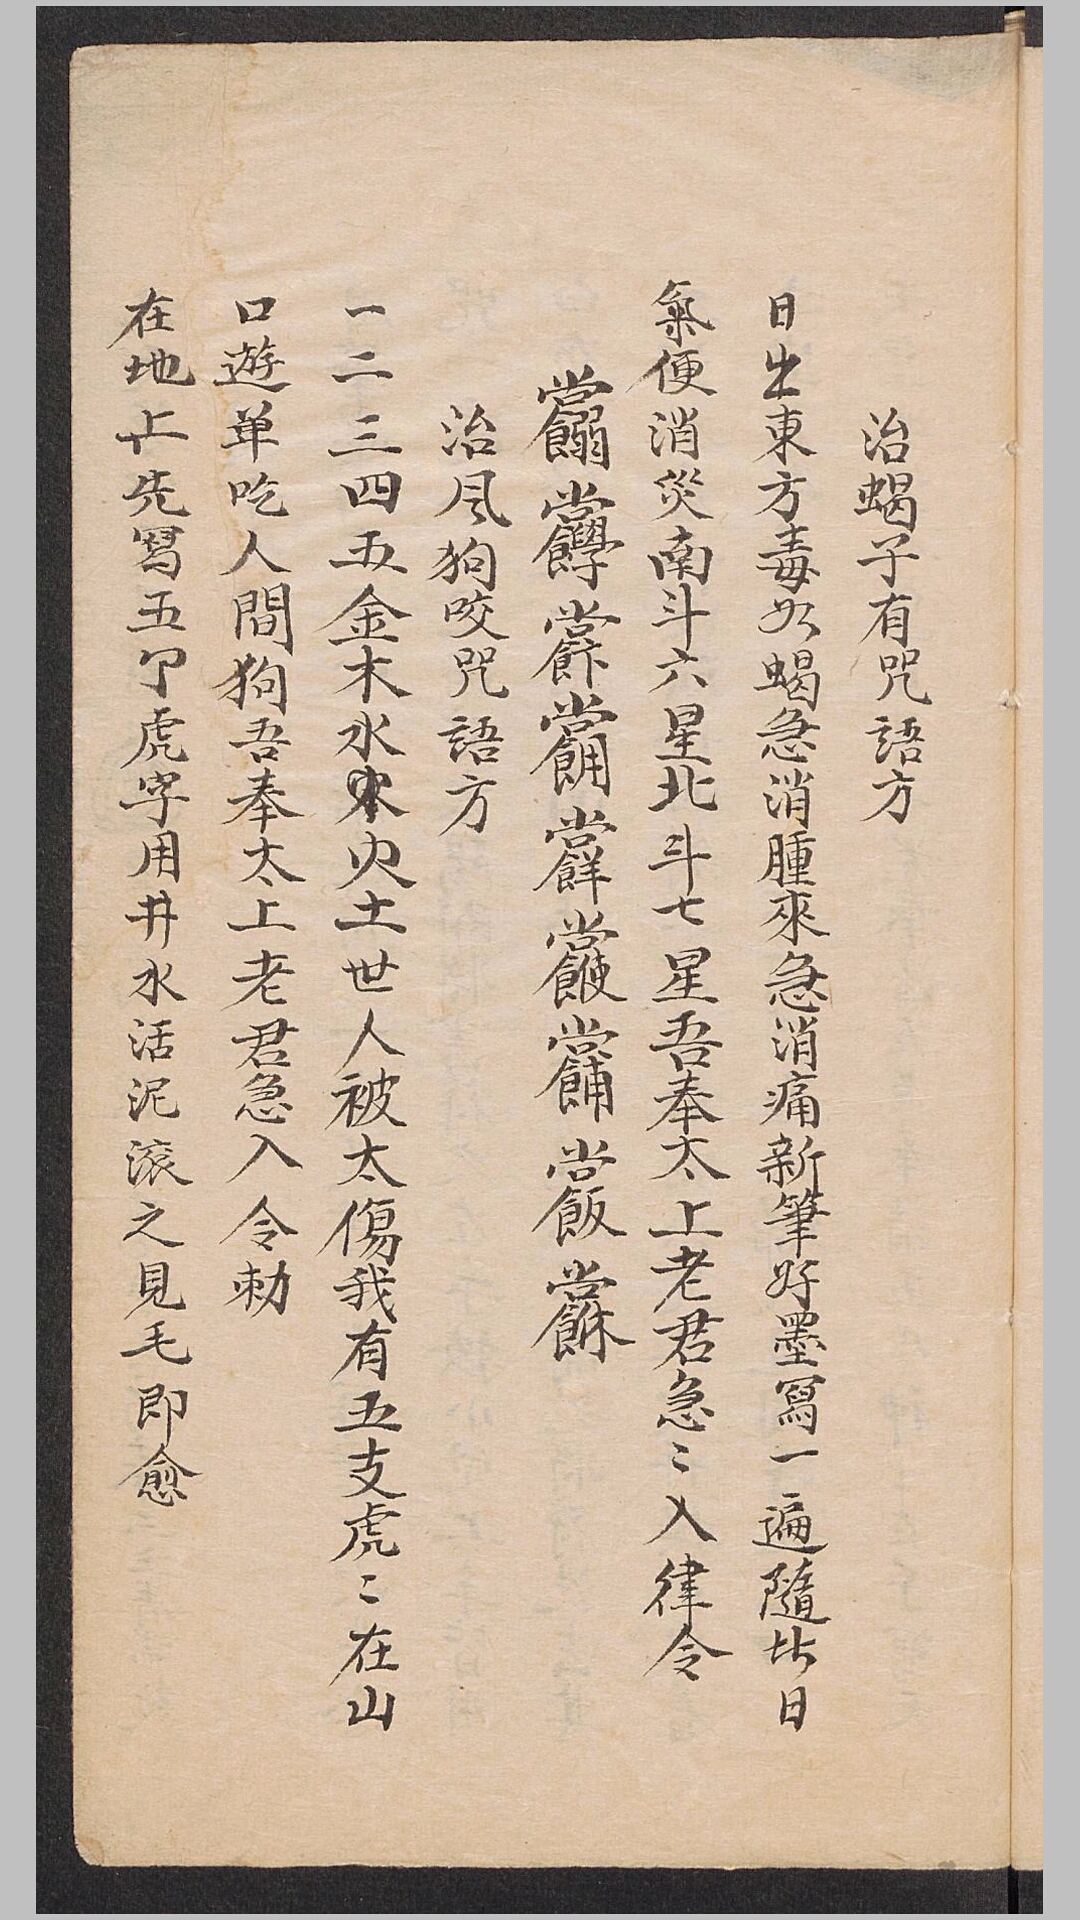 治蝎子有咒語方
日出東方毒如蝎急消腫來急消痛新筆好墨寫一遍隨此日
氣便消災南斗六星北斗七星吾奉太上老君急〻入律令
治風狗咬咒語方
一二三四五金木水火土世人被太傷我有五支虎〻在山
口遊单吃人間狗吾奉太上老君急入令勅
在地上先寫五个虎字用井水活泥滚之見毛即愈